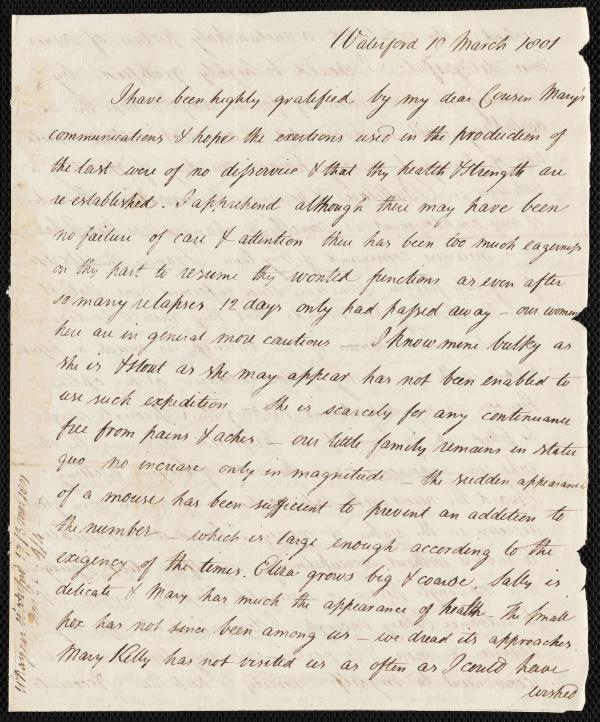 Waterford 10 March 1801
I have been highly gratified by my dear Cousin Mary's
communications & hope the exertions used in the production of
the last were of no disservice & that thy health & strength are
re-established. I apprehend although there may have been
no failure of care & attention there has been too much eagerness
on thy part to resume thy wonted functions as even after
so many relapses 12 days only had passed away – our women
here are in general more cautious – I know mine bulky as
she is & stout as she may appear has not been enabled to
use such expedition She is scarcely for any continuance
free from pains & aches – our little family remains in statu
quo no increase only in magnitude – the sudden appearance
of a mouse has been sufficient to prevent an addition to
the number – which is large enough according to the
exigency of the times. Eliza grows big & coarse. Sally is
delicate & Mary has much the appearance of health – The small
pox has not since been among us – we dread its approaches
Mary Kelly has not visited us as often as I could have
wished
Waterford